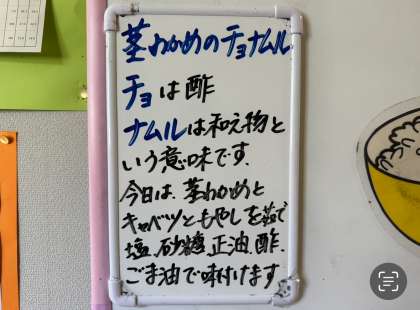 茎わかめのチョナムル
チョは酢
ナムルは和え物と
いう意味です.
今日は、茎わかめと
キャベツともやしを茹で
塩、砂糖、正油、酢、
ごま油で味付けます